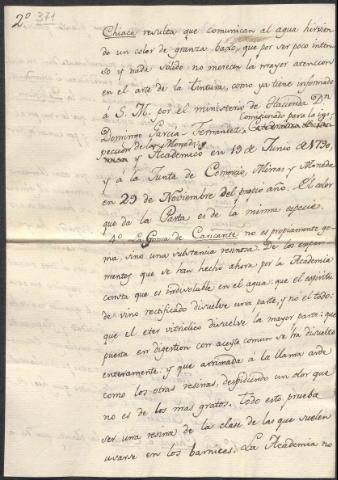 2.º 371
Chiace resulta que comunican al agua hirvien
do un color de granza baxo, que por ser poco inten
so y nada sólido no merecen la mayor atencion
en el arte de la tintura, como ya tiene informado
á S. M. por el ministerio de Hacienda Dn
Domingo Garcia Fernandez, Comisionado para la ins-
peccion de las Monedas
y Academico en 19 de Junio de 1790,
y á la Junta de Comercio, Minas y Moneda
en 29 de Noviembre del propio año. El color
que da la Parta es de la misma especie.
4.º La Goma de Caricante no es propiamente go-
ma, sino una substancia resinosa. De los experi-
mentos que se han hecho ahora por la Academia
consta que es indisoluble en el agua: que el espiritu
de vino rectificado disuelve una parte, y no el todo:
que el eter vitriolico disuelve la mayor parte: que
puesta en digestion con aceyte comun se ha disuelto
enteramente: y que arrimada á la llama arde
como las otras resinas, despidiendo un olor que
no es de los mas gratos. Todo esto prueba
ser una resina de la clase de las que suelen
usarse en los barnices. La Academia no